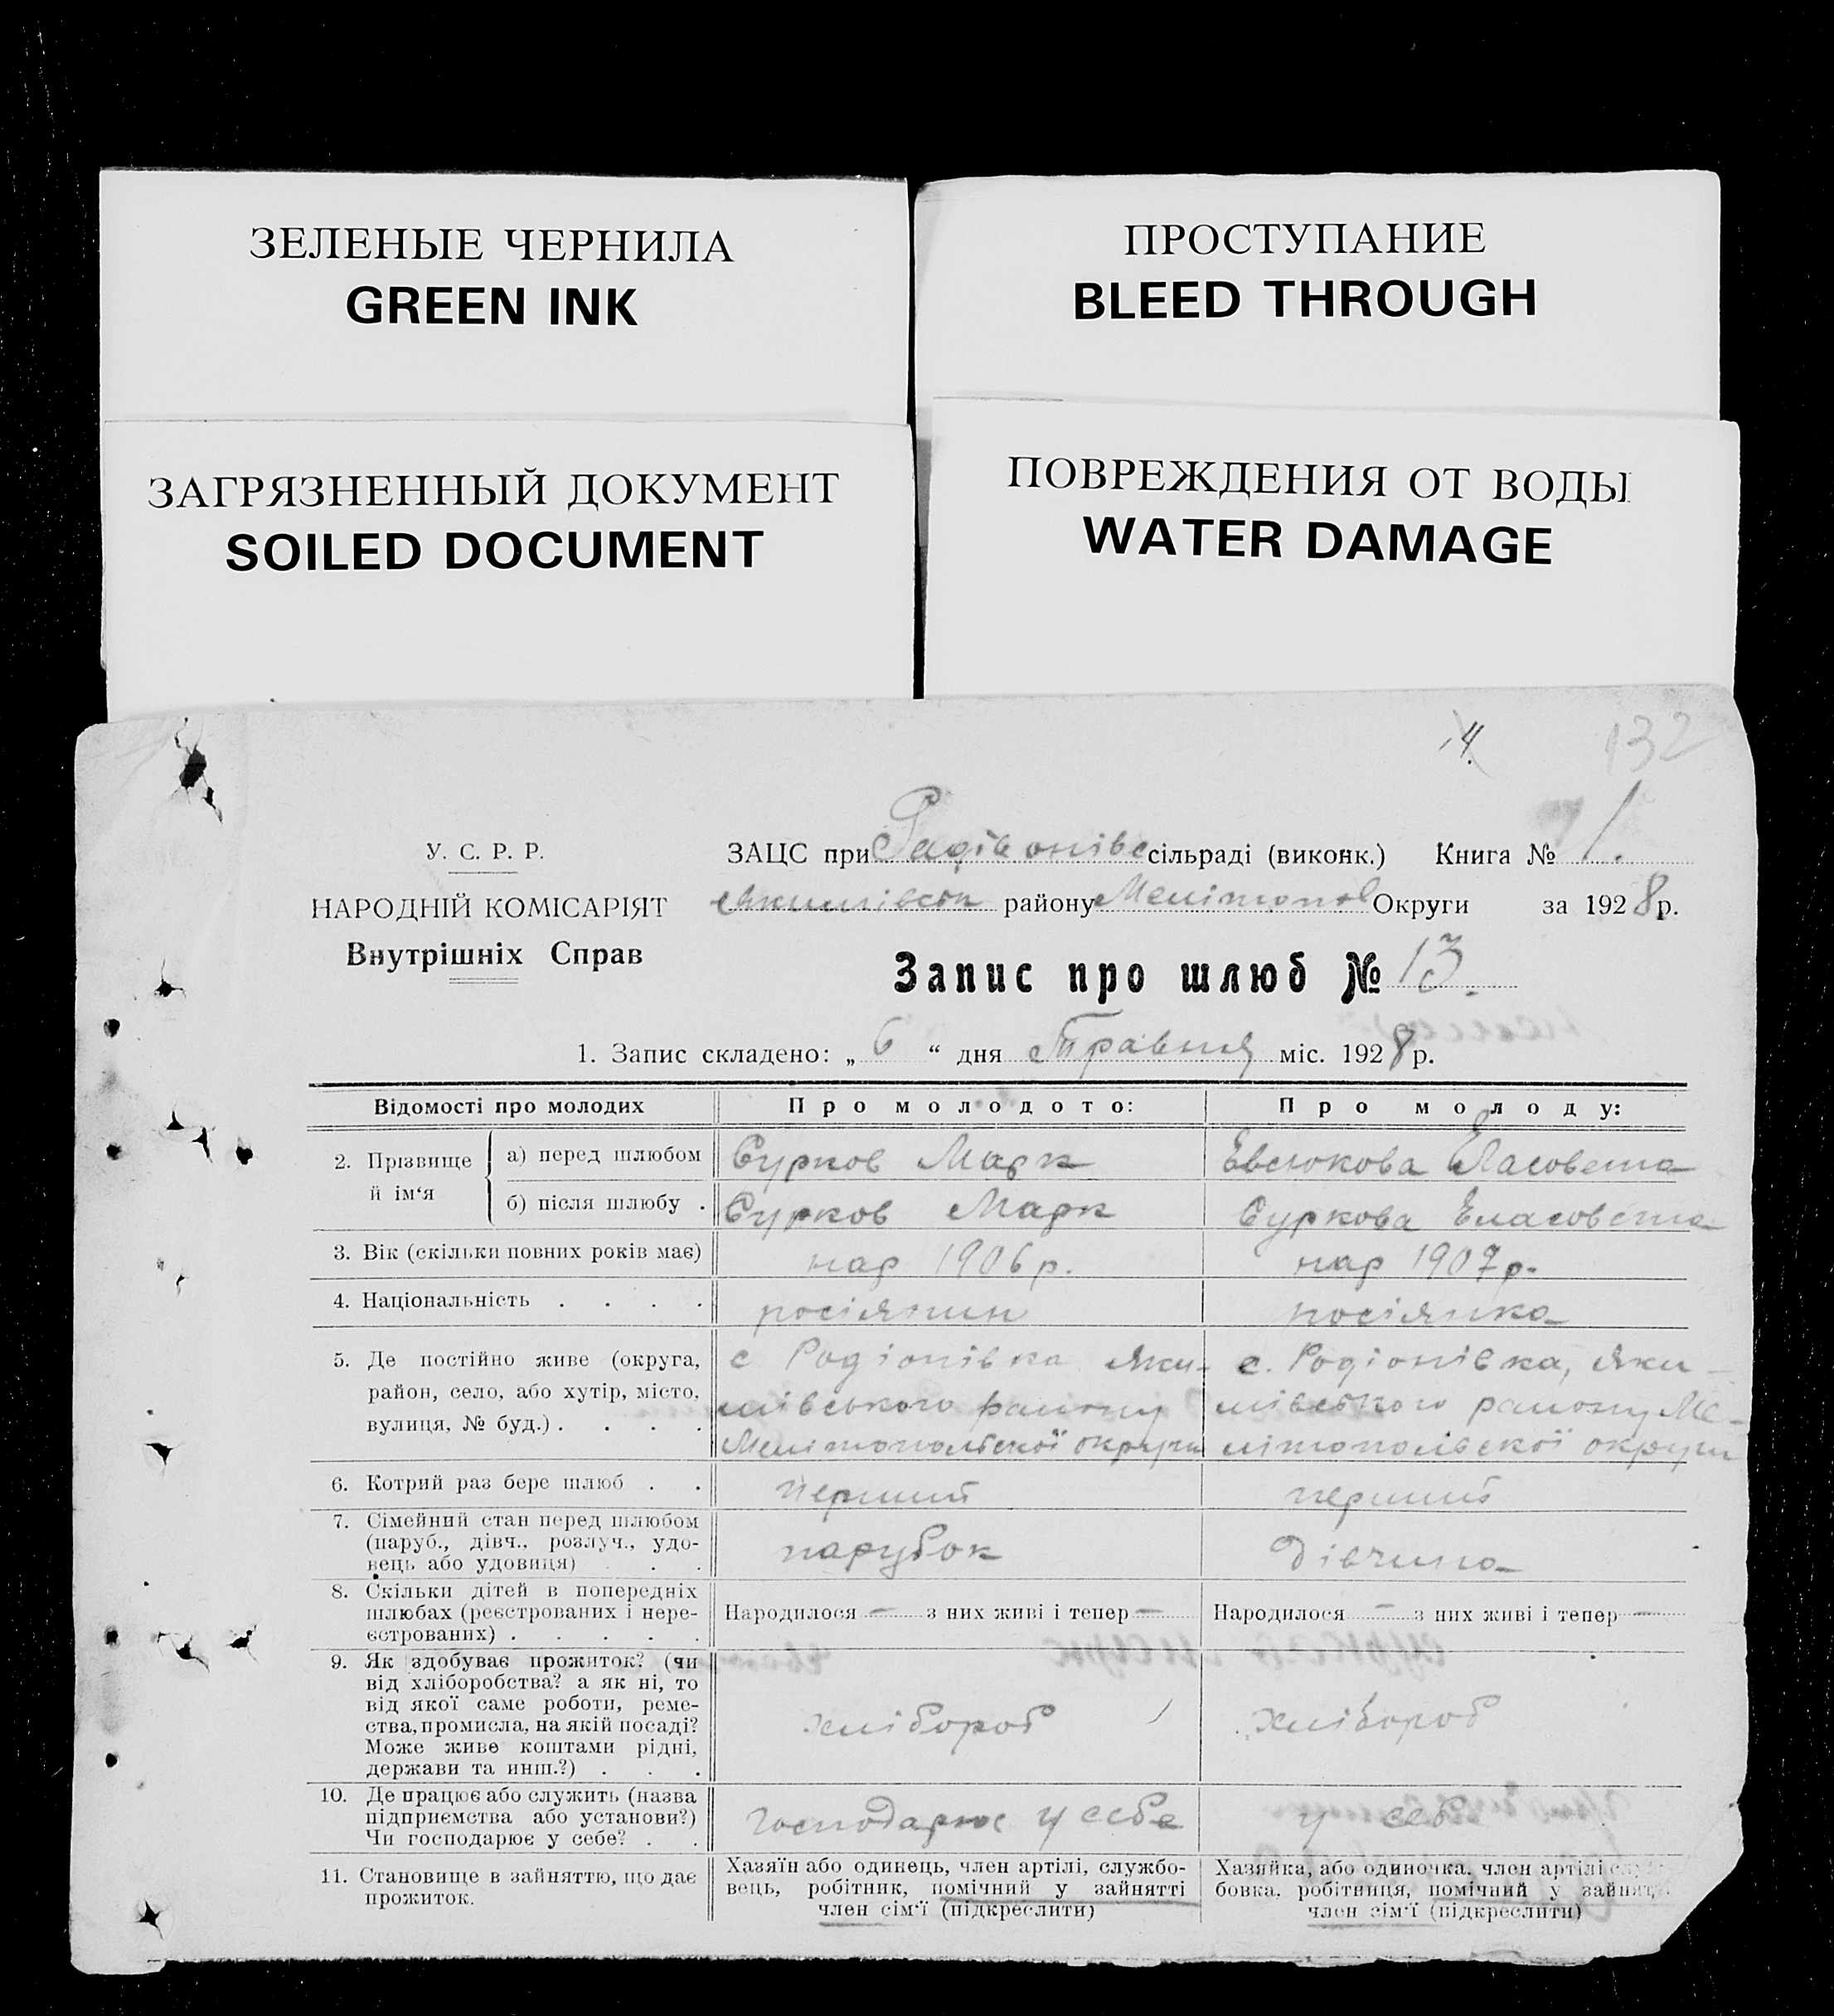 ЗЕЛЕНЫЕ ЧЕРНИЛА
GREEN INK
ПРОСТУПАНИЕ
BLEED THROUGH
ЗАГРЯЗНЕННЫЙ ДОКУМЕНТ
SOILED DOCUMENT
ПОВРЕЖДЕНИЯ ОТ ВОДЫ
WATER DAMAGE
4.
132
У. С. Р. Р.
НАРОДНІЙ КОМІСАРІЯТ
Внутрішніх Справ
ЗАЦС при Радівонівс сільраді (виконк.) Книга № 1.
Якимівськ району Мелітопол Округи за 1928 р.
Запис про шлюб № 13.
1. Запис складено: „ 6 “ дня Травня міс. 1928 р.
Відомості про молодих
Про молодого:
Про молоду:
2. Прізвище й ім‘я
а) перед шлюбом
Сурков Марк
Евсюкова Еласовета
б) після шлюбу .
Сурков Марк
Суркова Еласовета
3. Вік (скільки повних років має)
нар 1906 р.
нар 1907 р.
4. Національність . . . .
росіянин
росіянка
5. Де постійно живе (округа,
район, село, або хутір, місто,
вулиця, № буд.) . . . .
с Родіонівка Яки-
мівського району
Мелітопольської округи
с. Родіонівка, Яки-
мівського району Ме-
літопольської округи
6. Котрий раз бере шлюб . .
перший
перший
7. Сімейний стан перед шлюбом
(паруб., дівч., розлуч., удо-
вець або удовиця) . .
парубок
Дівчина
8. Скільки дітей в попередніх
шлюбах (реєстрованих і нере-
єстрованих) . . . . .
Народилося — з них живі і тепер —
Народилося — з них живі і тепер —
9. Як здобуває прожиток? (чи
від хліборобства? а як ні, то
від якої саме роботи, реме-
ства, промисла, на якій посаді?
Може живе коштами рідні,
держави та инш.?) . . .
хлібороб
хлібороб
10. Де працює або служить (назва
підприємства або установи?)
Чи господарює у себе? . .
Господарює у себе
у себе
11. Становище в зайняттю, що дає
прожиток.
Хазяїн або одинець, член артілі, службо-
вець, робітник, помічний у зайнятті
член сім'ї (підкреслити)
Хазяйка, або одиночка, член артілі служ
бовка, робітниця, помічний у зайнят
член сім'ї (підкреслити)